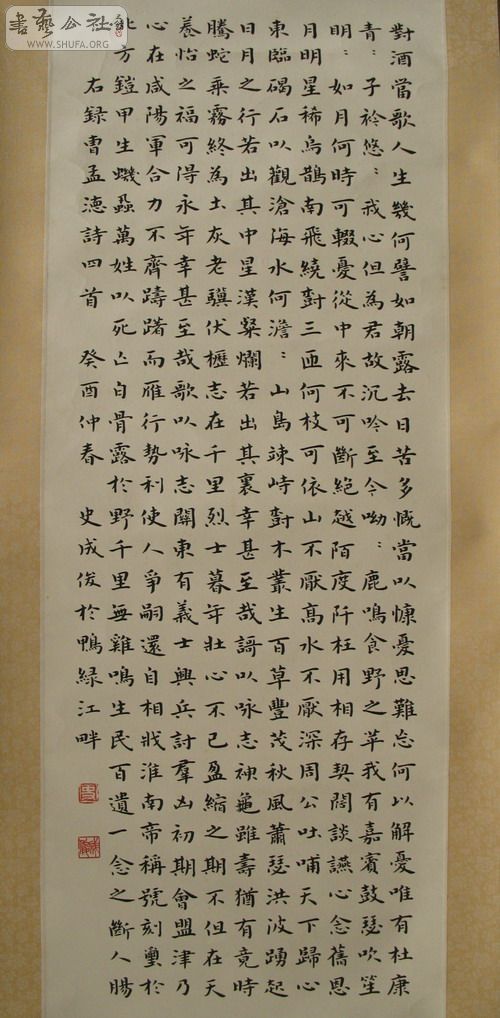 書藝公社
WWW.SHUFA.ORG
對酒當歌人生幾何譬如朝露去日苦多慨當以慷憂思難忘何以解憂唯有杜康
青〻子衿悠〻我心但為君故沉吟至今呦〻鹿鳴食野之苹我有嘉賓鼓瑟吹笙
明〻如月何時可輟憂從中來不可斷絕越陌度阡枉用相存契闊談讌心念舊恩
月明星稀烏鵲南飛繞對三匝何枝可依山不厭高水不厭深周公吐哺天下歸心
東臨碣石以觀滄海水何澹〻山島竦峙對木叢生百草豐茂秋風蕭瑟洪波踴起
日月之行若出其中星漢粲爛若出其裏幸甚至哉謌以咏志神龜雖壽猶有竟時
騰蛇乘霧終為土灰老驥伏櫪志在千里烈士暮年壯心不已盈縮之期不但在天
養怡之福可得永年幸甚至哉歌以咏志關東有義士興兵討羣凶初期會盟津乃
心在咸陽軍合力不齊躊躇而雁行勢利使人爭嗣還自相戕淮南帝稱號刻璽於
北方鎧甲生蟣蝨萬姓以死亡白骨露於野千里無雞鳴生民百遺一念之斷人腸
右錄曹孟德詩四首 癸酉仲春 史成俊於鴨綠江畔